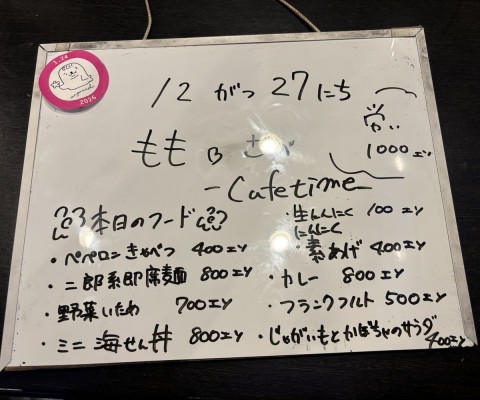 1.24
2016
12がつ27にち
ももB
1000エン
-Cafetime-
本日のフード
・ペペロンきゃべつ 400エン
・二郎系即席麺 800エン
・野菜いため 700エン
・ミニ海せん丼 800エン
・生にんにく 100エン
にんにく
・素あげ 400エン
・カレー 800エン
・フランクフルト 500エン
・じゃがいもとかぼちゃのサラダ
400エン